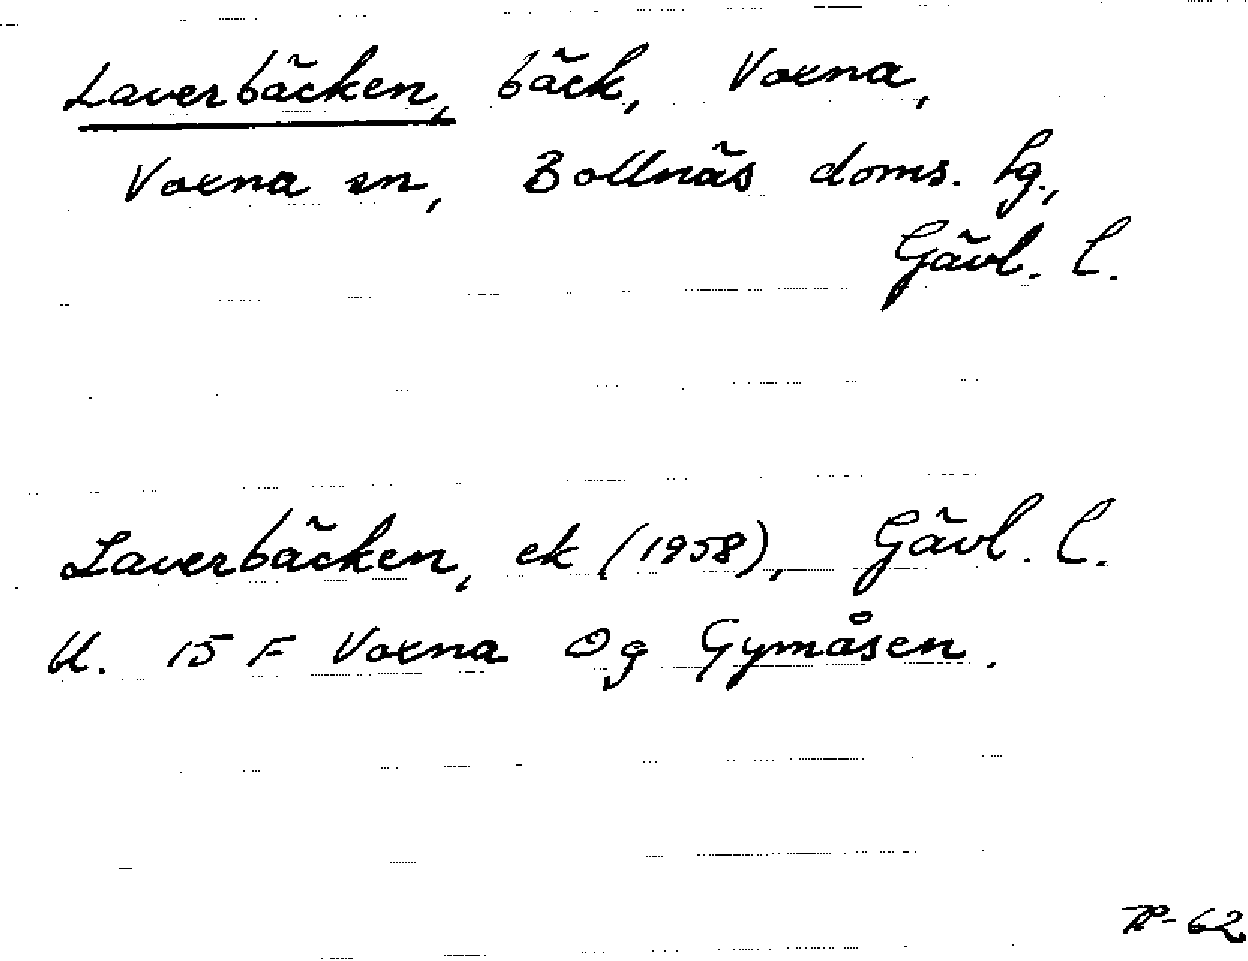 Laverbäcken, bäck, Voxna,
Voxna sn, Bollnäs doms. hg.,
Gävl. l.
Laverbäcken, ek (1958), Gävl. l.
U. 15 F Voxna Og Gymåsen.
-62